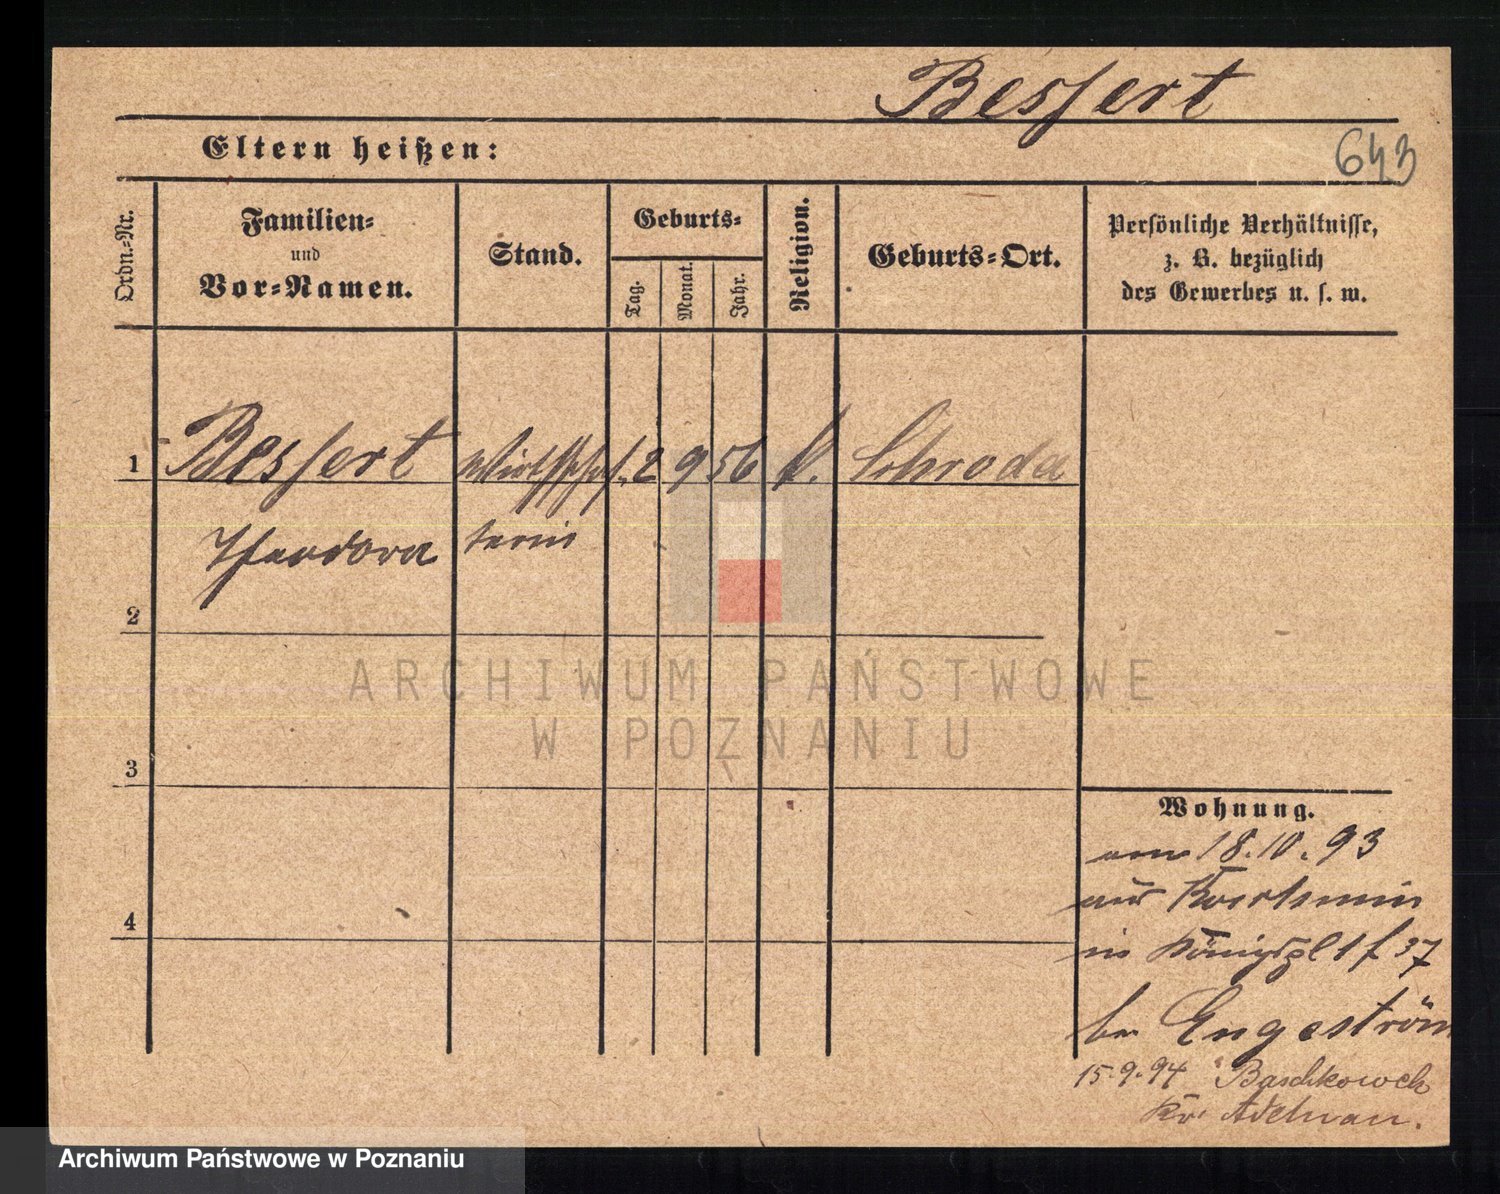 Bessert
Eltern heißen:
643
Ordn.-Nr.
Familien-
und
Vor-Namen.
Stand.
Geburts-
Tag.
Monat.
Jahr.
Religion.
Geburts-Ort.
Persönliche Verhältnisse,
z. B. bezüglich
des Gewerbes u. s. w.
1 Bessert Wirthschaf- 2 9 56 k. Schroda
Theodora terin
2
ARCHIWUM PAŃSTWOWE
W POZNANIU
3
4
Wohnung.
18.10.93
aus
in Königspl 1 f 37
bei Engeström
15.9.94 Baschkowch
Kr. Adelnau.
Archiwum Państwowe w Poznaniu